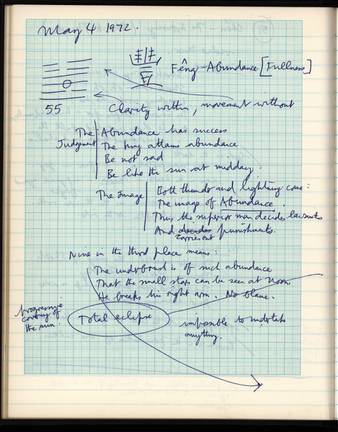 May 4 1972.
豐
Fêng - Abundance [Fullness]
55
Clarity within, movement without
The Judgment
Abundance has success
The king attains abundance
Be not sad
Be like the sun at midday.
The Image
Both thunder and lightning come:
The image of Abundance.
Thus the superior man decides lawsuits
And carries out punishments.
Nine in the third place means:
The underbrush is of such abundance
That the small stars can be seen at noon
He breaks his right arm. No blame.
progressive covering of the sun.
Total eclipse
impossible to undertake
anything.